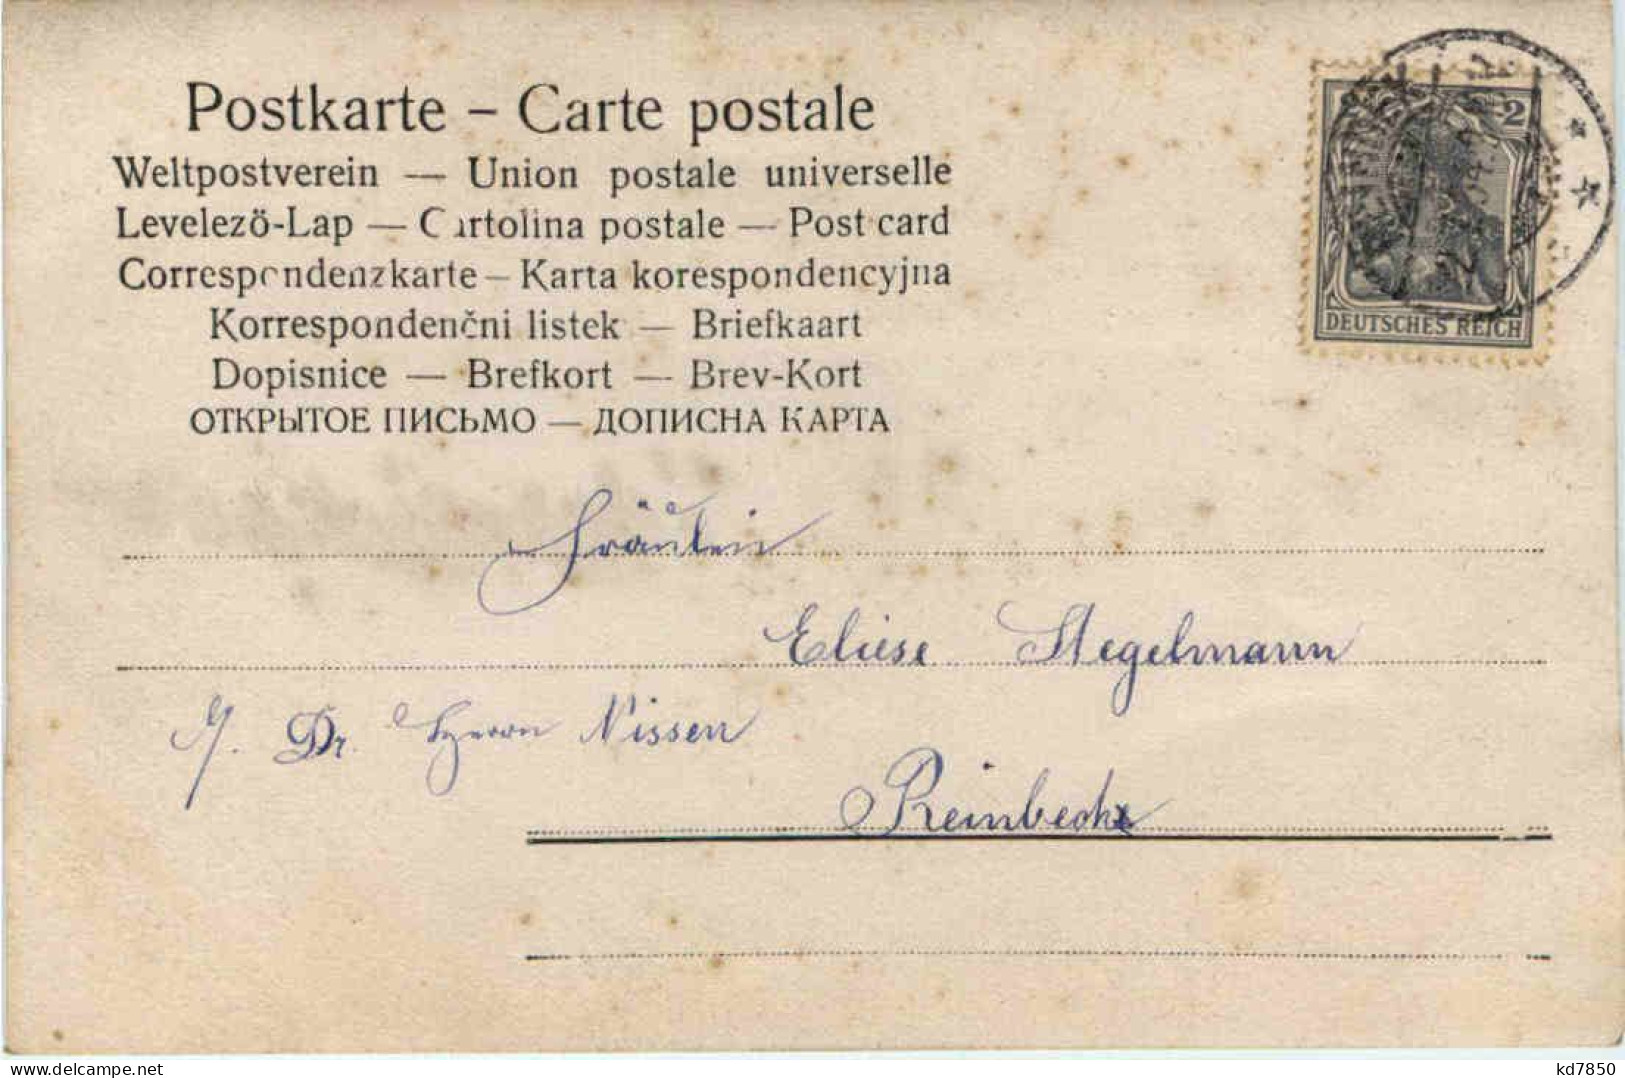 Postkarte – Carte postale
Weltpostverein — Union postale universelle
Levelezö-Lap — Cartolina postale — Post card
Correspondenzkarte – Karta korespondencyjna
Korrespondenčni listek — Briefkaart
Dopisnice — Brefkort — Brev-Kort
ОТКРЫТОЕ ПИСЬМО — ДОПИСНА КАРТА
2
DEUTSCHES REICH
Fräulein
Eliese Stegelmann
Dr. Herrn Nissen
Reinbeck
kd7850